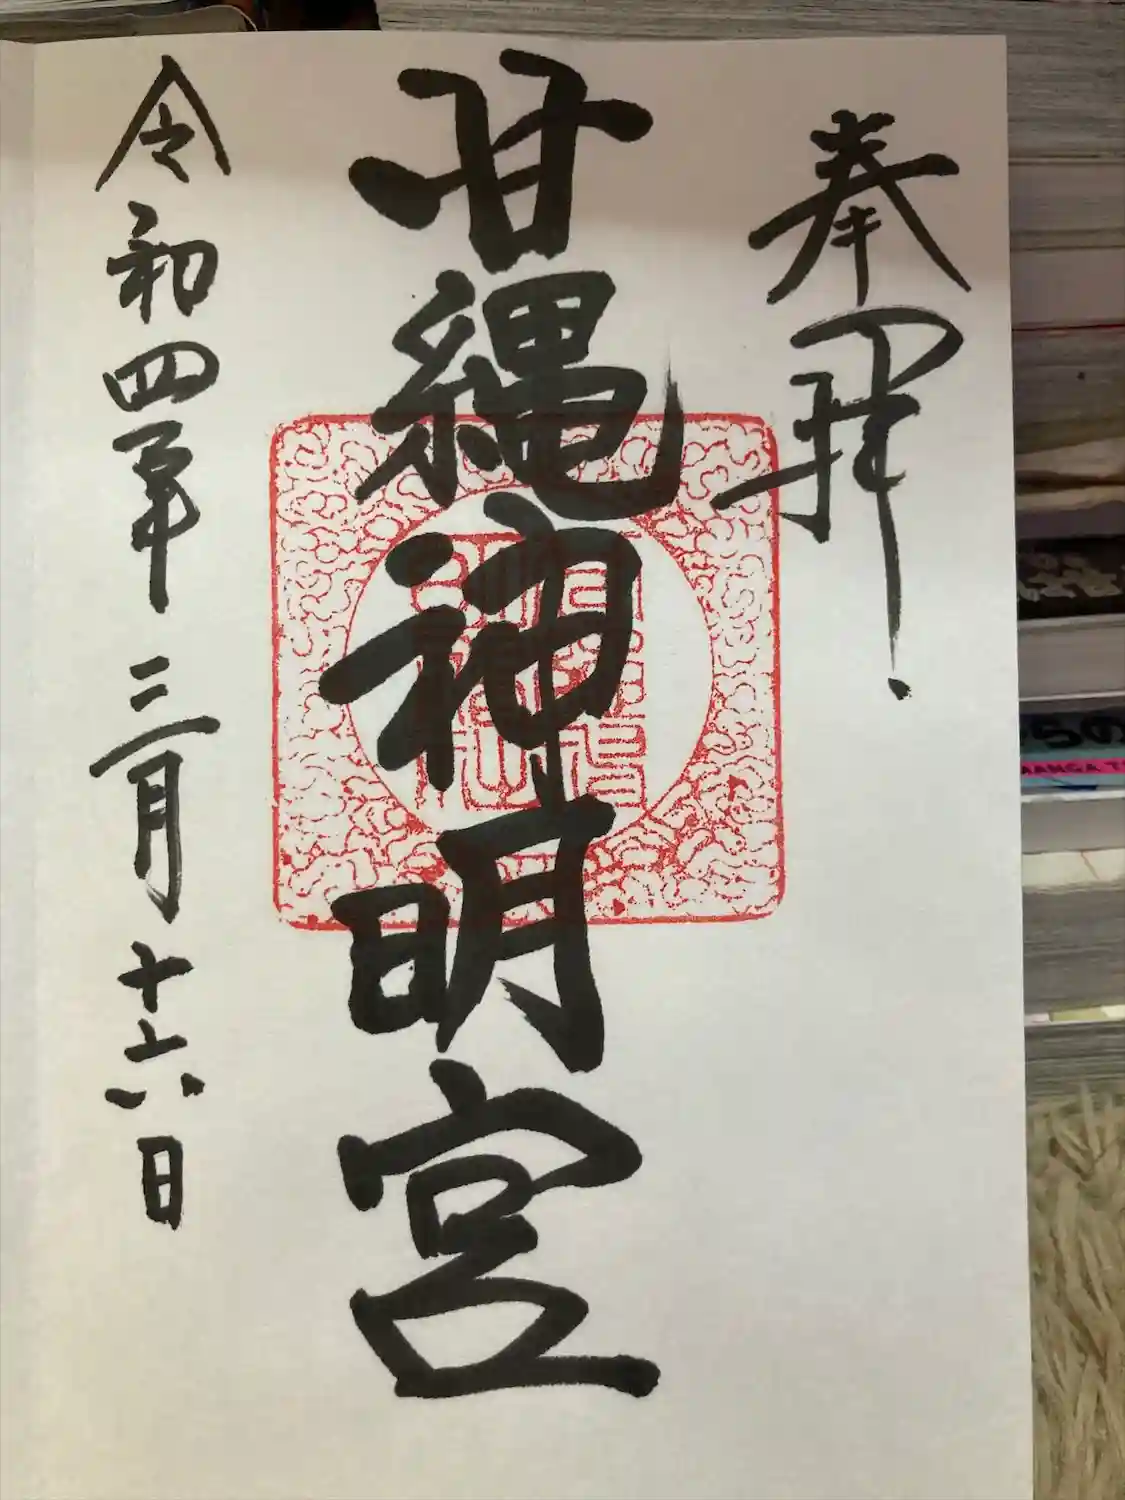 奉拝
甘縄神明宮
令和四年三月十六日